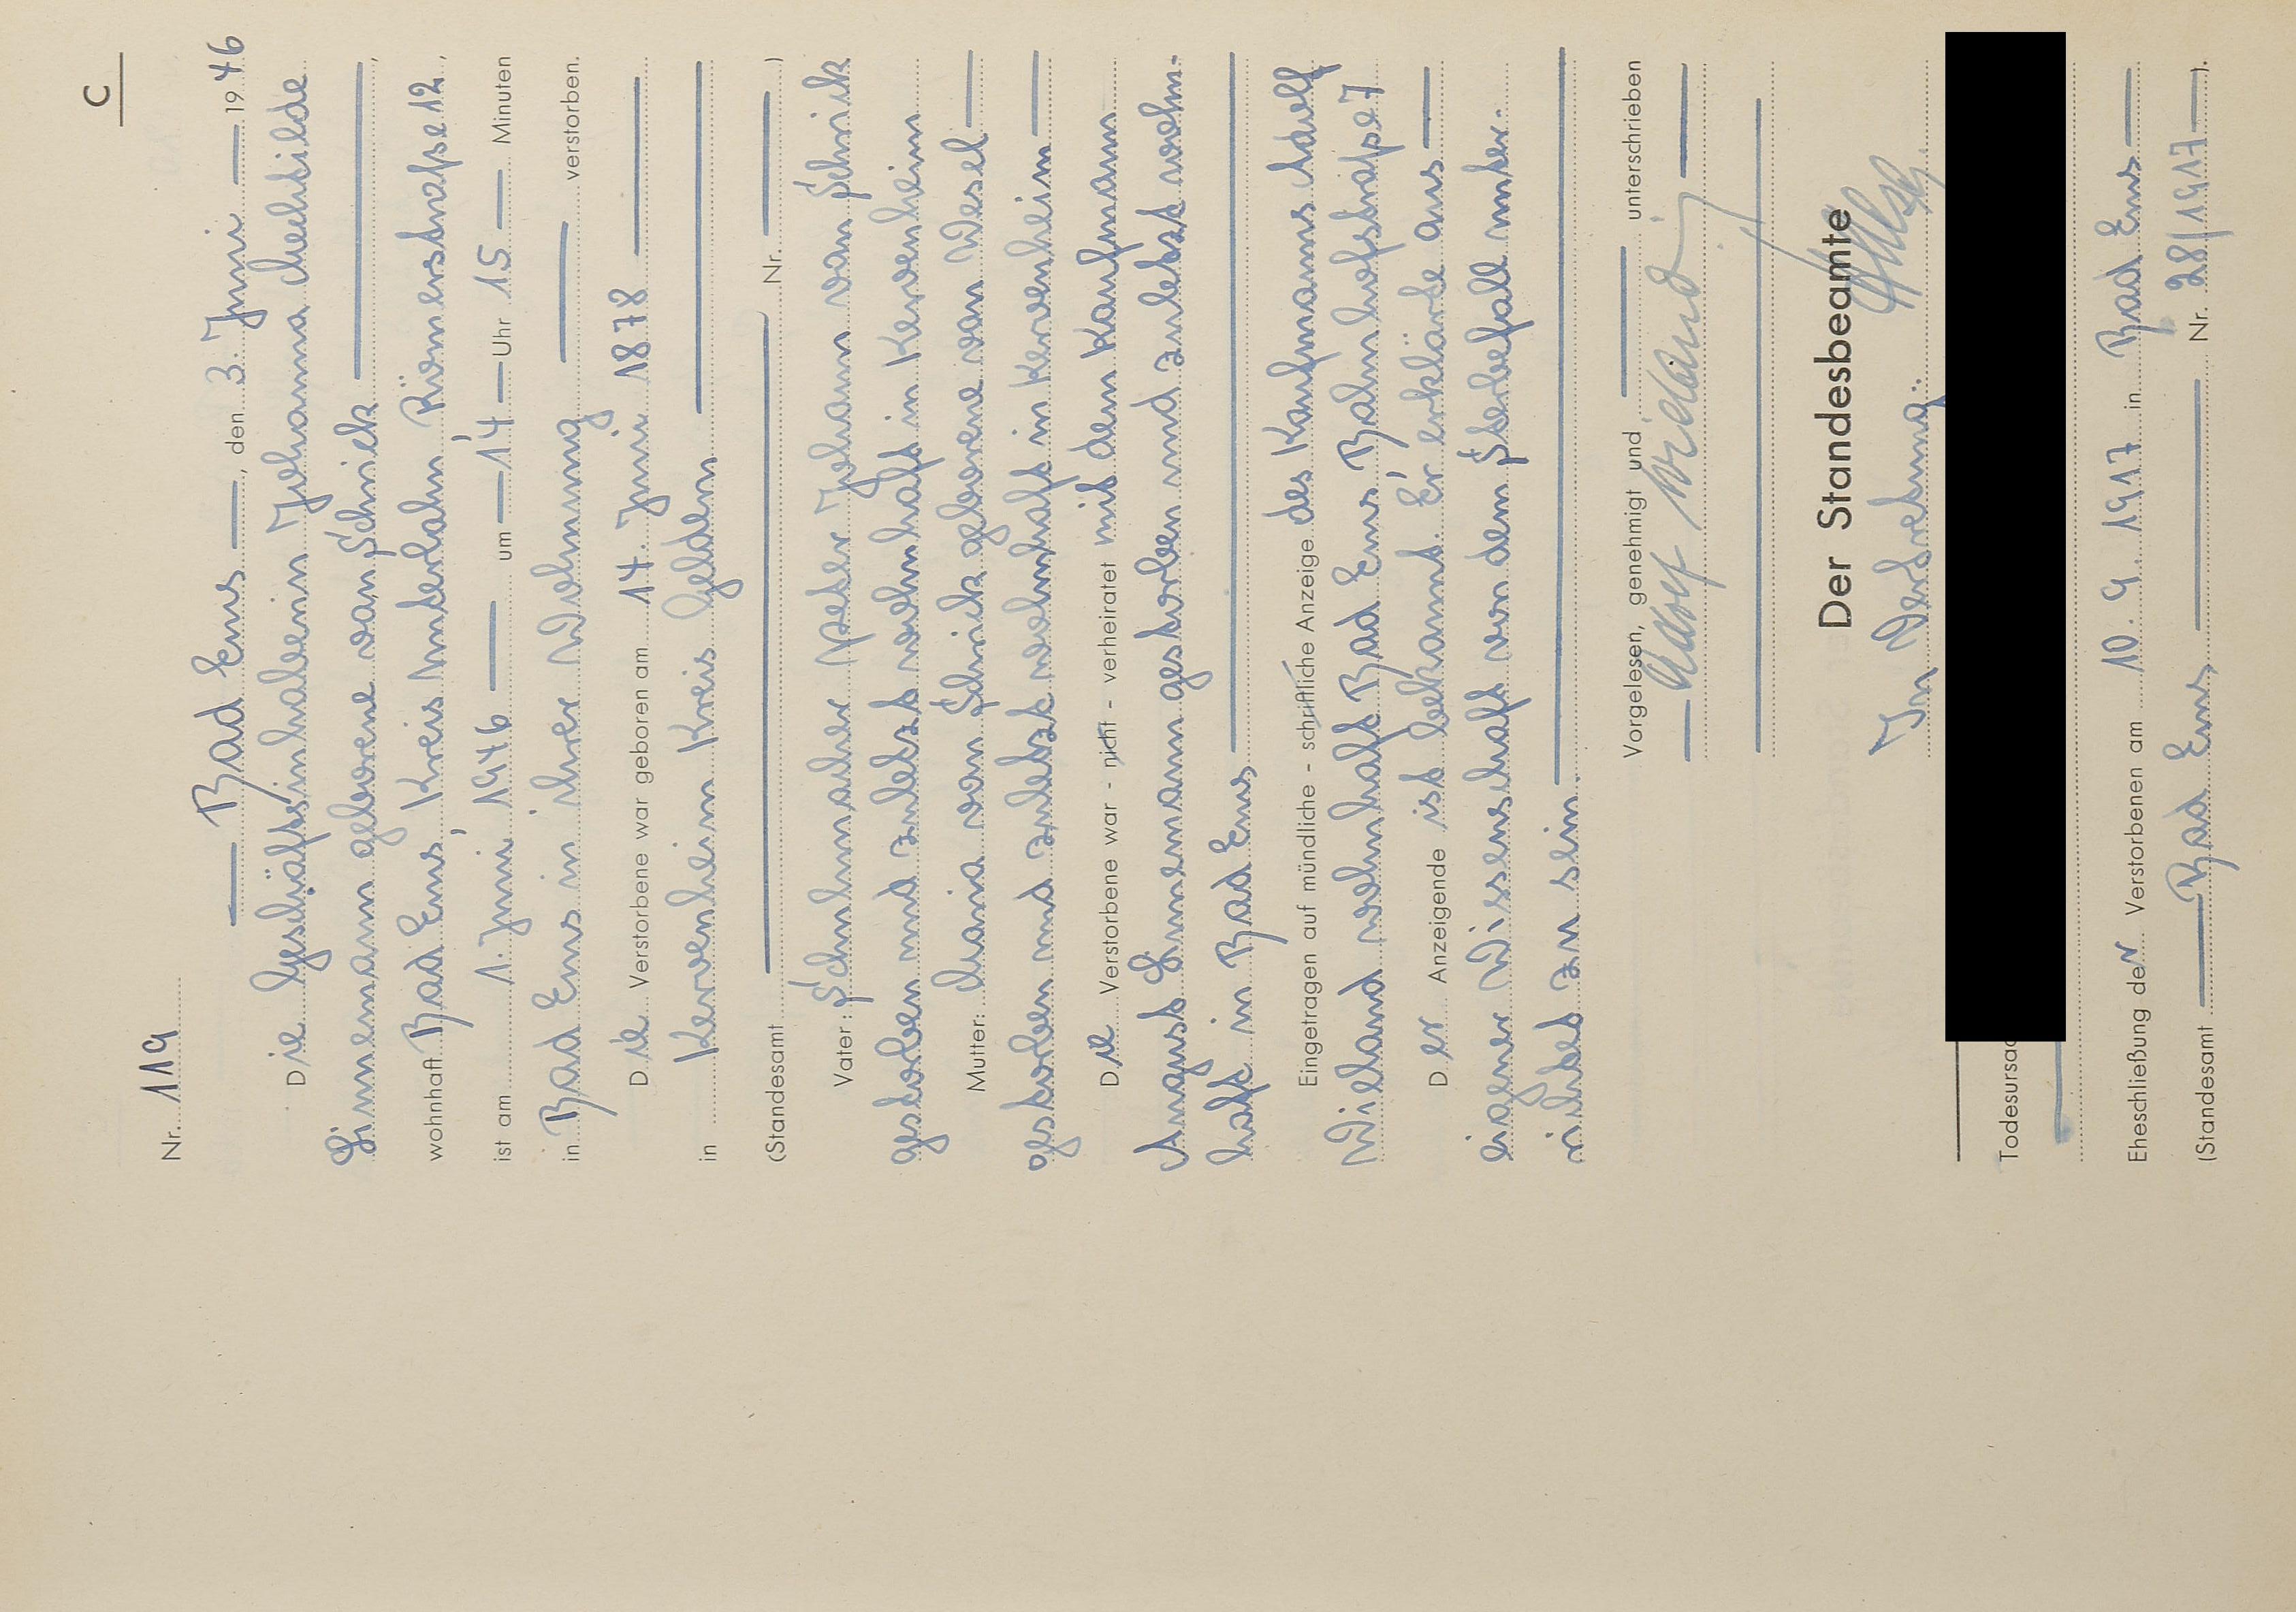 C
Nr. 119
Bad Ems, den 3. Juni 1946
Die Geschäftsinhaberin Johanna Mechtilde
Linnemann geborene van Schrick,
wohnhaft Bad Ems, Kreis Unterlahn Römerstraße 12,
ist am 1. Juni 1946 um 14 Uhr 15 Minuten
in Bad Ems in ihrer Wohnung verstorben.
Die Verstorbene war geboren am 14. Juni 1878
in Kervenheim Kreis Geldern
(Standesamt Nr. )
Vater: Schuhmacher Peter Johann van Schrick
gestorben und zuletzt wohnhaft in Kervenheim
Mutter: Maria van Schrick geborene van Wesel
gestorben und zuletzt wohnhaft in Kervenheim
Die Verstorbene war - nicht - verheiratet mit dem Kaufmann
August Linnemann gestorben und zuletzt wohn-
haft in Bad Ems
Eingetragen auf mündliche - schriftliche Anzeige des Kaufmanns Adolf
Wieland wohnhaft Bad Ems, Bahnhofstraße 7
Der Anzeigende ist bekannt. Er erklärte aus
eigener Wissenschaft von dem Sterbefall unter-
richtet zu sein.
Vorgelesen, genehmigt und unterschrieben
Adolf Wieland
Der Standesbeamte
In Vertretung:
Todesursac
Eheschließung der Verstorbenen am 10. 9. 1917 in Bad Ems
(Standesamt Bad Ems Nr. 28/1917 ).